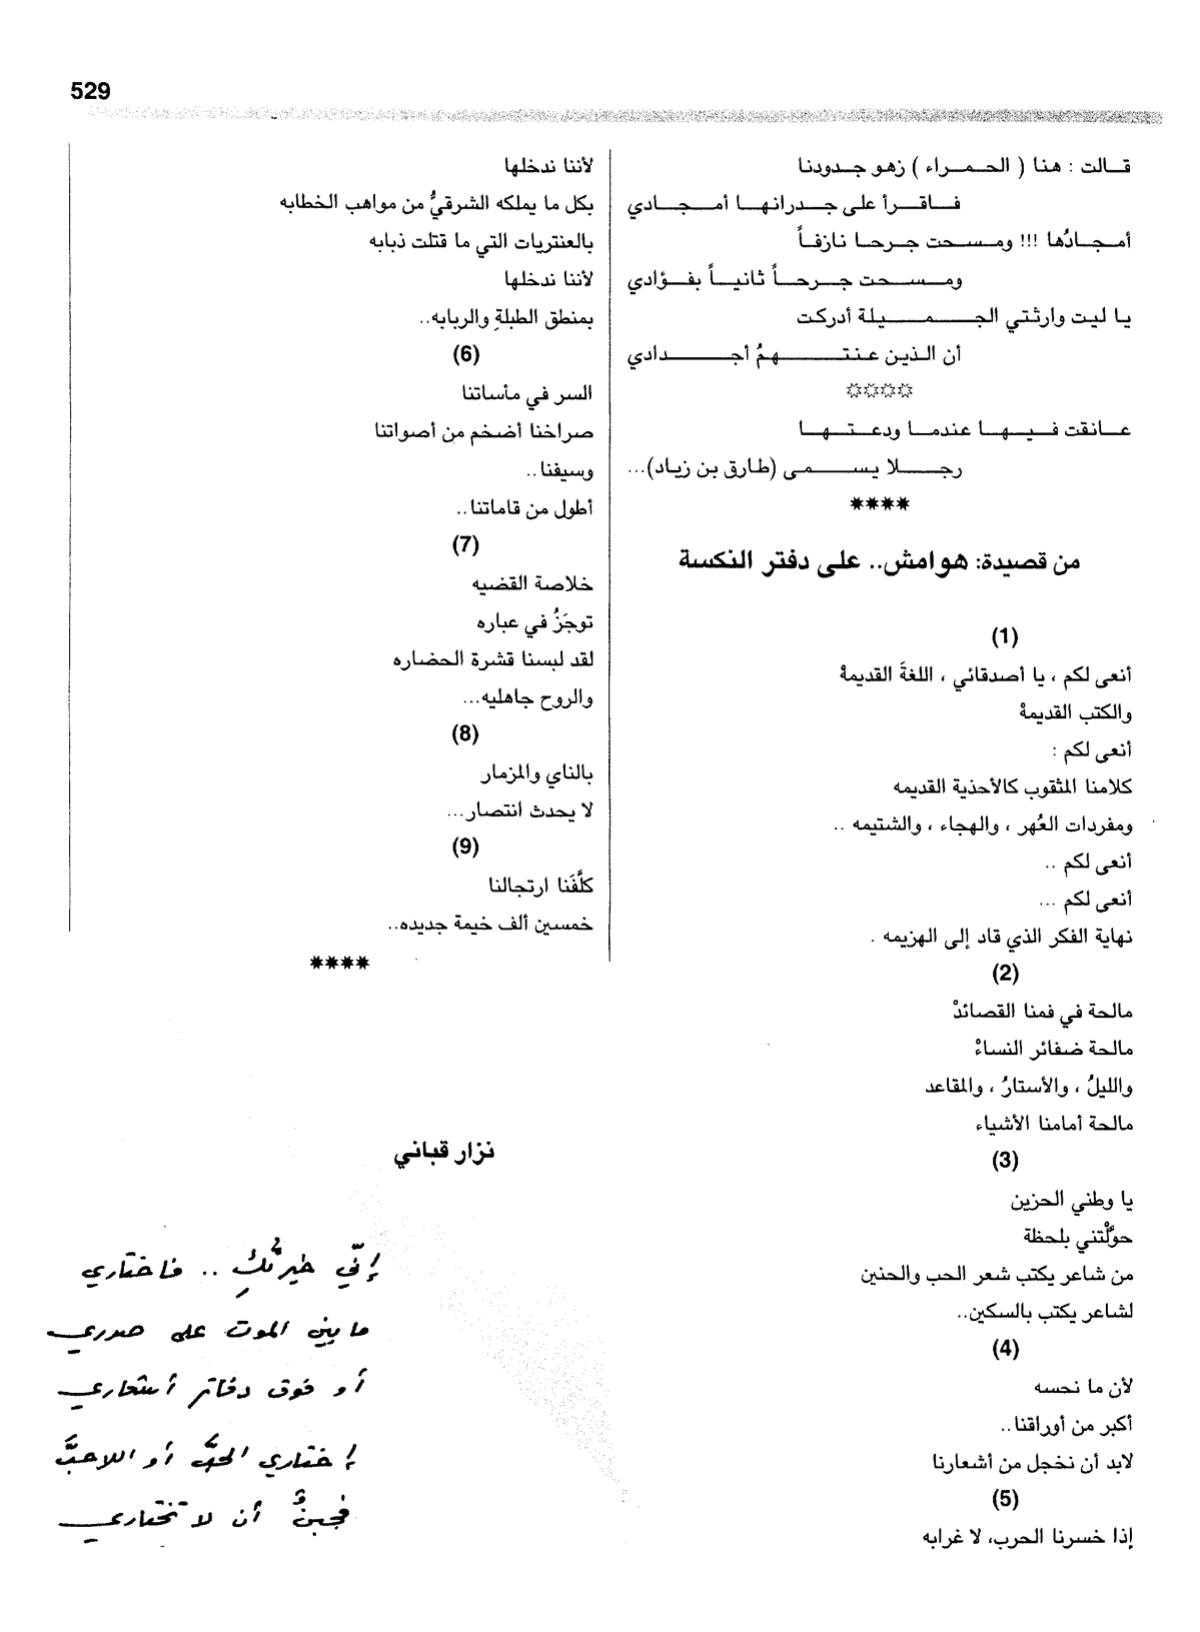 529
قالت : هنا ( الحمراء ) زهو جدودنا
فاقرأ على جدرانها أمجادي
أمجادُها !!! ومسحت جرحا نازفاً
ومسحت جرحاً ثانياً بفؤادي
يا ليت وارثتي الجميلة أدركت
أن الذين عنتهمُ أجدادي
☼☼☼☼
عانقت فيها عندما ودعتها
رجلا يسمى (طارق بن زياد)...
****
من قصيدة: هوامش.. على دفتر النكسة
(1)
أنعى لكم ، يا أصدقائي ، اللغةَ القديمةْ
والكتب القديمةْ
أنعى لكم :
كلامنا المثقوب كالأحذية القديمه
ومفردات العُهر ، والهجاء ، والشتيمه ..
أنعى لكم ..
أنعى لكم ...
نهاية الفكر الذي قاد إلى الهزيمه .
(2)
مالحة في فمنا القصائدْ
مالحة ضفائر النساءْ
والليلُ ، والأستارُ ، والمقاعد
مالحة أمامنا الأشياء
(3)
يا وطني الحزين
حوَّلْتني بلحظة
من شاعر يكتب شعر الحب والحنين
لشاعر يكتب بالسكين..
(4)
لأن ما نحسه
أكبر من أوراقنا..
لابد أن نخجل من أشعارنا
(5)
إذا خسرنا الحرب، لا غرابه
لأننا ندخلها
بكل ما يملكه الشرقيُّ من مواهب الخطابه
بالعنتريات التي ما قتلت ذبابه
لأننا ندخلها
بمنطق الطبلةِ والربابه..
(6)
السر في مأساتنا
صراخنا أضخم من أصواتنا
وسيفنا..
أطول من قاماتنا..
(7)
خلاصة القضيه
توجَزُ في عباره
لقد لبسنا قشرة الحضاره
والروح جاهليه...
(8)
بالناي والمزمار
لا يحدث انتصار...
(9)
كلَّفَنا ارتجالنا
خمسين ألف خيمة جديده..
****
نزار قباني
إنّي خيّرتُكِ .. فاختاري
ما بين الموت على صدري
أو فوق دفاتر أشعاري
إختاري الحبَّ أو اللاحبَّ
فجبنٌ أن لا تختاري